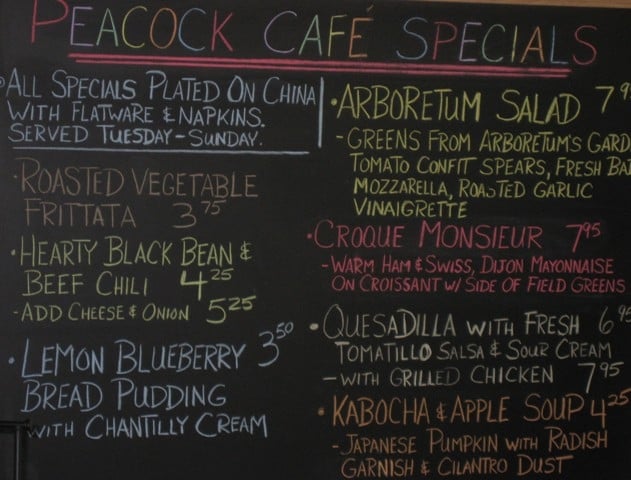 PEACOCK CAFÉ SPECIALS
ALL SPECIALS PLATED ON CHINA
WITH FLATWARE & NAPKINS.
SERVED TUESDAY - SUNDAY.
• ROASTED VEGETABLE
FRITTATA 3.75
• HEARTY BLACK BEAN &
BEEF CHILI 4.25
- ADD CHEESE & ONION 5.25
• LEMON BLUEBERRY 3.50
BREAD PUDDING
WITH CHANTILLY CREAM
• ARBORETUM SALAD
- GREENS FROM ARBORETUM'S
TOMATO CONFIT SPEARS, FRESH
MOZZARELLA, ROASTED GARLIC
VINAIGRETTE
• CROQUE MONSIEUR 7.95
- WARM HAM & SWISS, DIJON MAYONNAISE
ON CROISSANT W/ SIDE OF FIELD GREENS
• QUESADILLA WITH FRESH
TOMATILLO SALSA & SOUR CREAM
- WITH GRILLED CHICKEN 7.95
• KABOCHA & APPLE SOUP 4.25
- JAPANESE PUMPKIN WITH RADISH
GARNISH & CILANTRO DUST